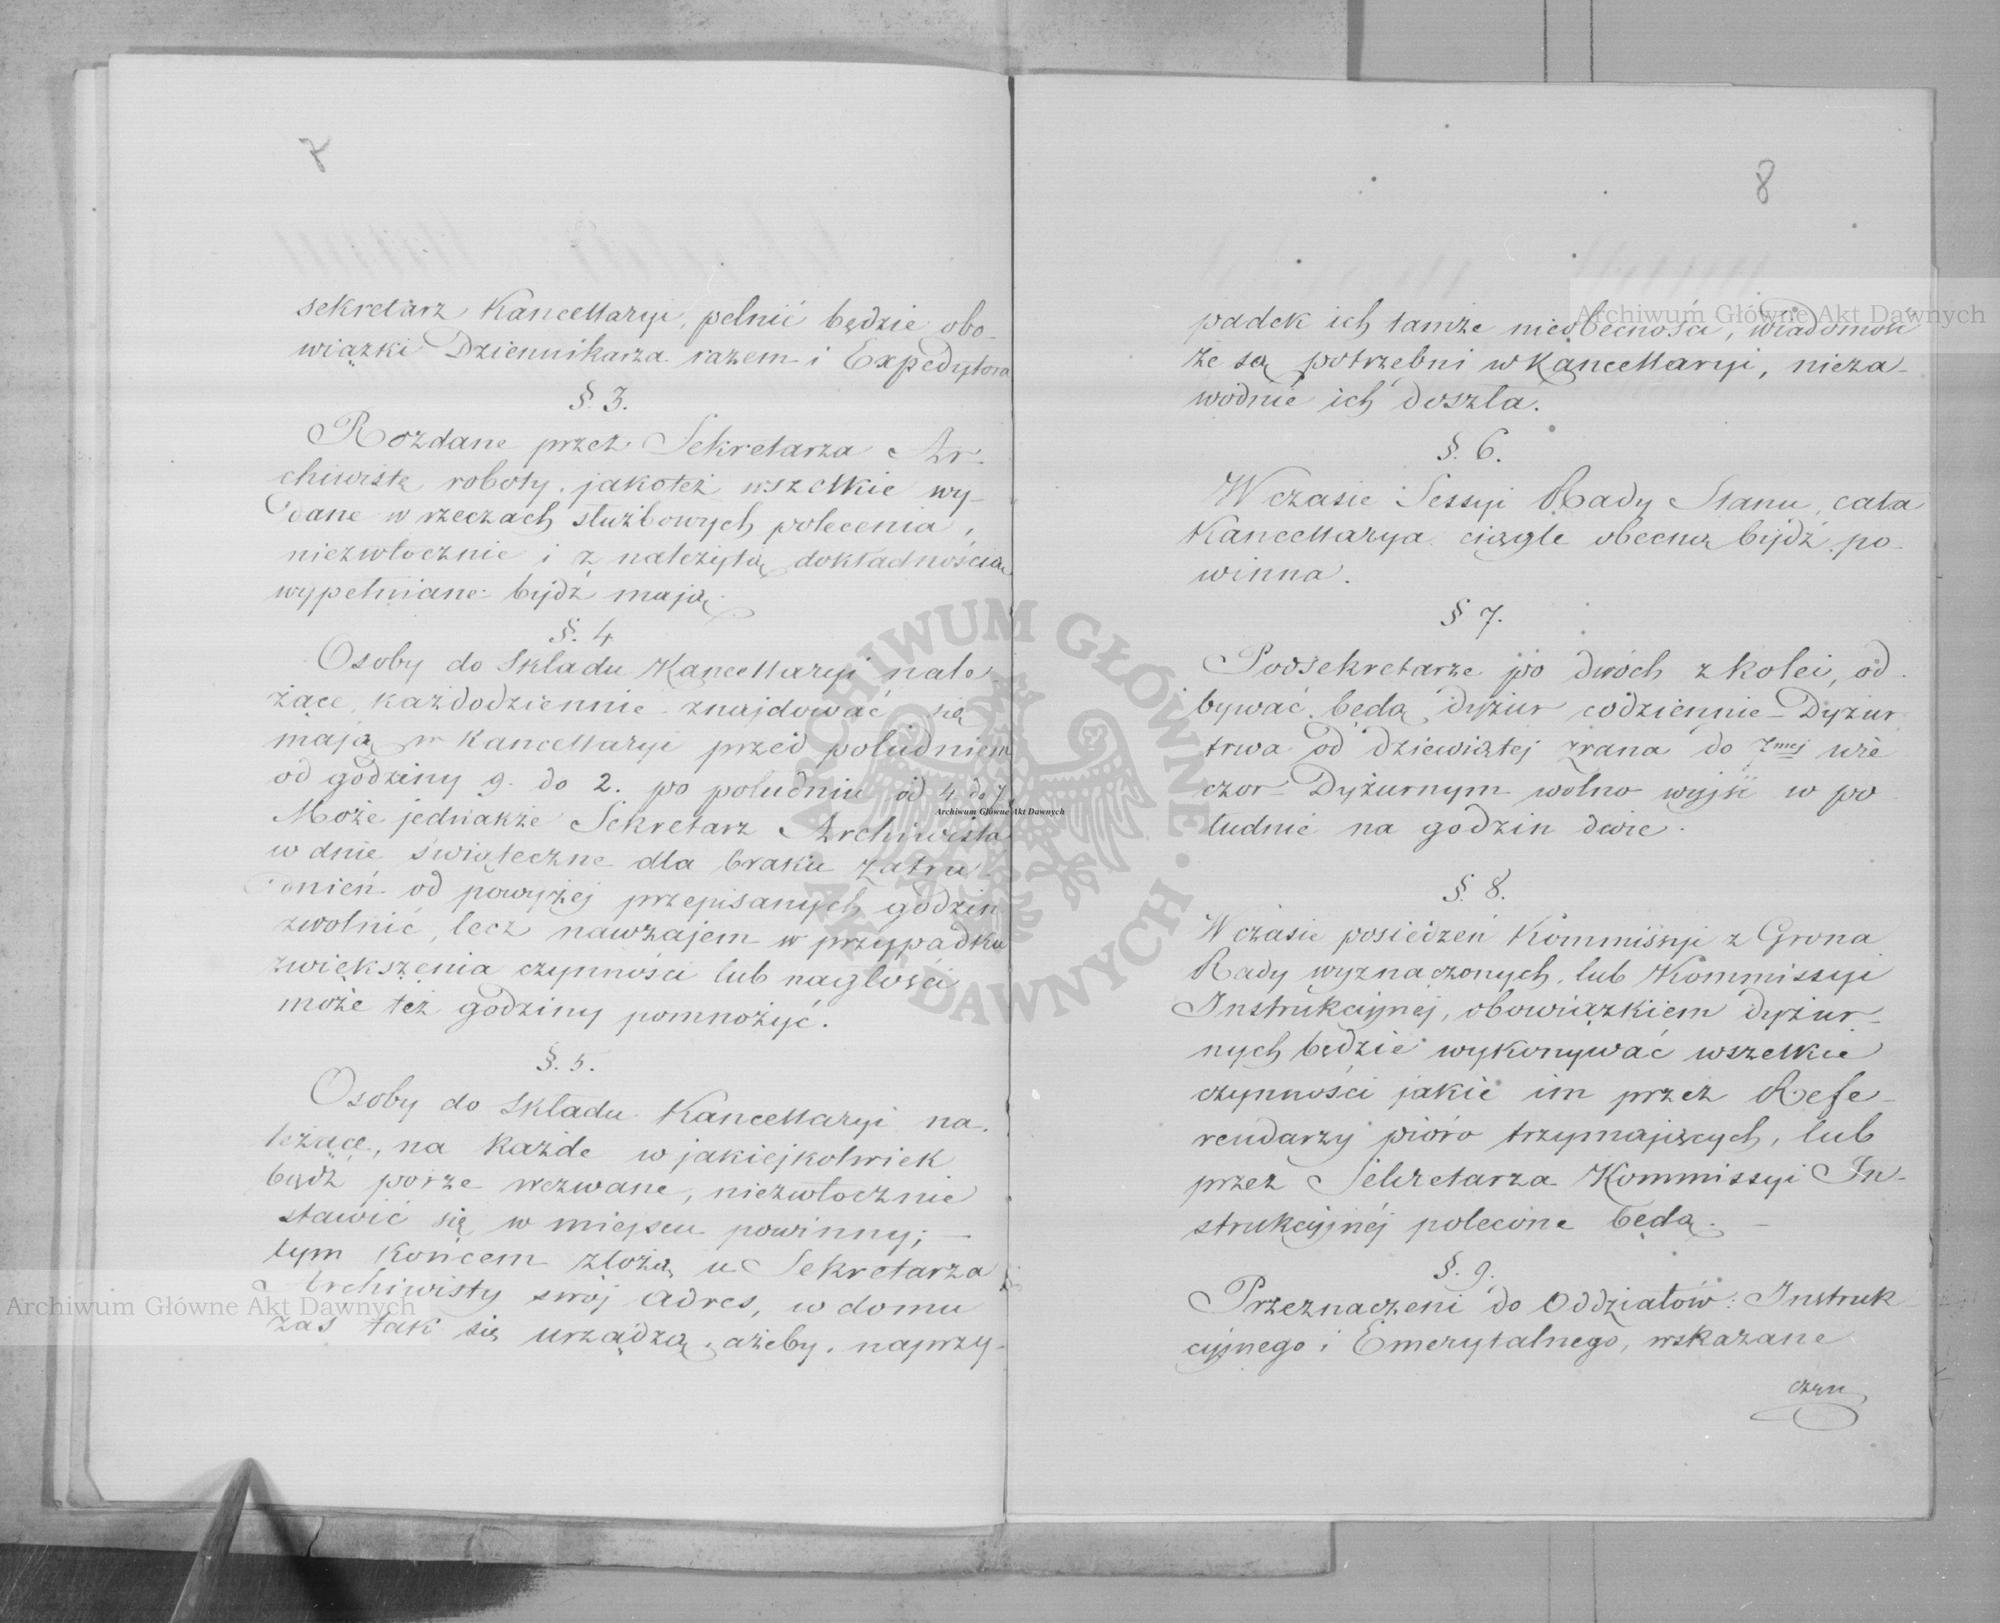 7
sekretarz Kancellaryi, pełnić będzie obo-
wiązki Dziennikarza razem i Expedytora
§. 3.
Rozdane przez Sekretarza Ar-
chiwistę roboty, jakoteż wszelkie wy-
dane w rzeczach służbowych polecenia,
niezwłocznie i z należytą dokładnością
wypełniane bydź mają.
§. 4
Osoby do Składu Kancellaryi nale-
żące, każdodziennie znajdować się
mają w Kancellaryi przed południem
od godziny 9. do 2. po południu od 4 do 7
Może jednakże Sekretarz Archiwista
w dnie świąteczne dla braku zatru-
dnień od powyżej przepisanych godzin
zwolnić, lecz nawzajem w przypadku
zwiększenia czynności lub nagłości
może też godziny pomnożyć.
§. 5.
Osoby do Składu Kancellaryi na-
leżące, na każde w jakiejkolwiek
bądź porze wezwane, niezwłocznie
stawić się w miejscu powinny; —
tym końcem złożą u Sekretarza
Archiwisty swój adres, w domu
zaś tak się urządzą, ażeby, naprzy-
8
padek ich tamże nieobecności, wiadomość
że są potrzebni w Kancellaryi, nieza-
wodnie ich doszła.
§. 6.
W czasie Sessyi Rady Stanu, cała
Kancellarya ciągle obecną bydź po-
winna.
§ 7.
Podsekretarze po dwóch z kolei, od-
bywać będą dyżur codziennie – Dyżur
trwa od dziewiątej zrana do 7mej wie
czor – Dyżurnym wolno wyjść w po
łudnie na godzin dwie.
§. 8.
W czasie posiedzeń Kommissyi z Grona
Rady wyznaczonych, lub Kommissyi
Instrukcyjnej, obowiązkiem dyżur-
nych będzie wykonywać wszelkie
czynności jakie im przez Refe-
rendarzy pióro trzymających, lub
przez Sekretarza Kommissyi In-
strukcyjnéj polecone będą. —
§. 9.
Przeznaczeni do Oddziałów: Instruk
cyjnego i Emerytalnego, wskazane
czyn
Archiwum Główne Akt Dawnych
Archiwum Główne Akt Dawnych
Archiwum Główne Akt Dawnych
ARCHIWUM GŁÓWNE · AKT DAWNYCH ·